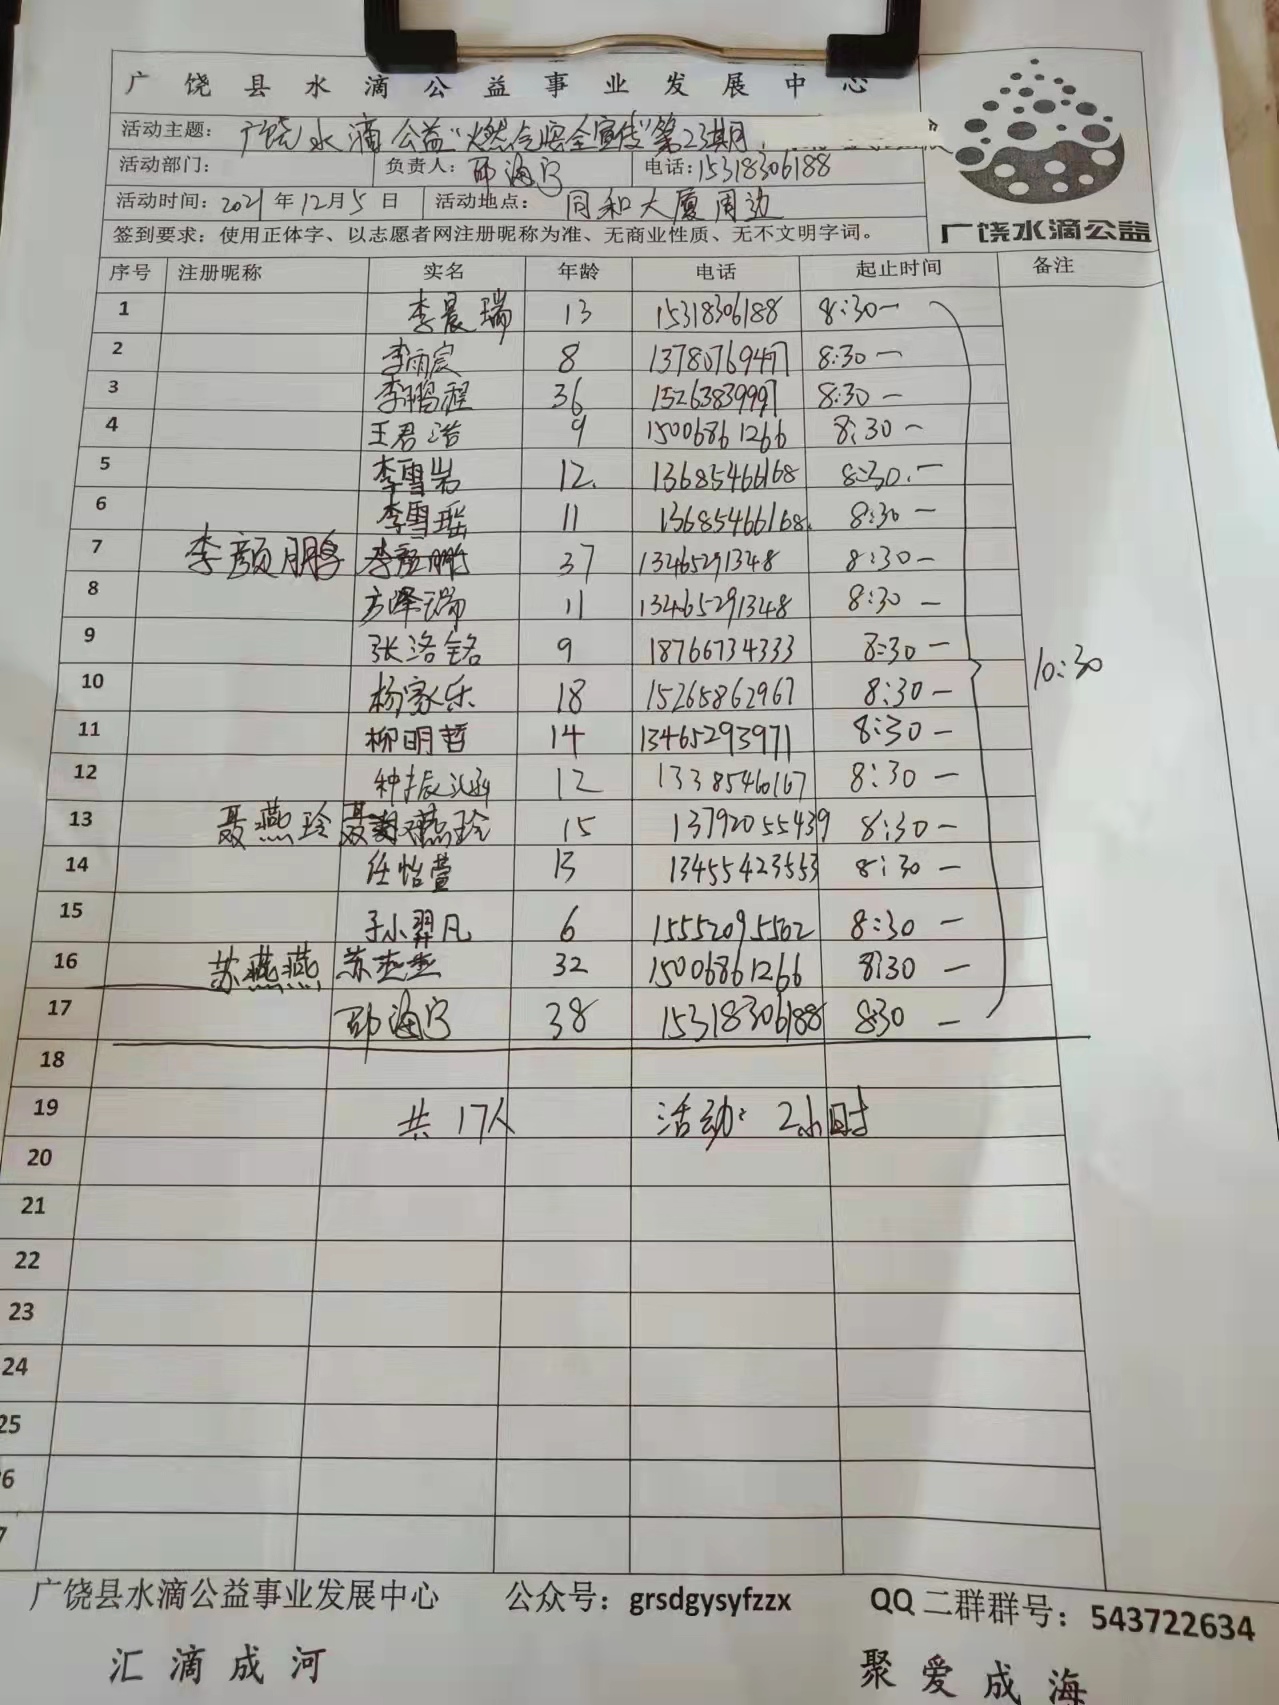 广饶县水滴公益事业发展中心
活动主题：广饶水滴公益“燃气安全宣传”第23期
活动部门： 负责人：邵海宁 电话：15318306188
活动时间：2021年12月5日 活动地点：同和大厦周边
签到要求：使用正体字、以志愿者网注册昵称为准、无商业性质、无不文明字词。
广饶水滴公益
序号 注册昵称 实名 年龄 电话 起止时间 备注
1 李晨瑞 13 15318306188 8:30—
2 李雨宸 8 13780769477 8:30—
3 李鹏程 36 15263839997 8:30—
4 王君浩 9 15006861266 8:30—
5 李雪岩 12 13685466168 8:30—
6 李雪瑶 11 13685466168 8:30—
7 李颜鹏 李颜鹏 37 13465291348 8:30—
8 瑞 11 13465291348 8:30—
9 张洛铭 9 18766734333 8:30— 10:30
10 杨家乐 18 15265862967 8:30—
11 柳明哲 14 13465293971 8:30—
12 种振 12 13385460167 8:30—
13 聂燕玲 聂燕玲 15 13792055439 8:30—
14 任怡萱 13 13455423553 8:30—
15 小羿凡 6 15552095502 8:30—
16 苏燕燕 苏 32 15006861266 8:30—
17 邵海宁 38 15318306188 8:30—
18
19 共17人 活动：2小时
20
21
22
23
24
25
6
7
广饶县水滴公益事业发展中心 公众号：grsdgysyfzzx QQ二群群号：543722634
汇滴成河 聚爱成海